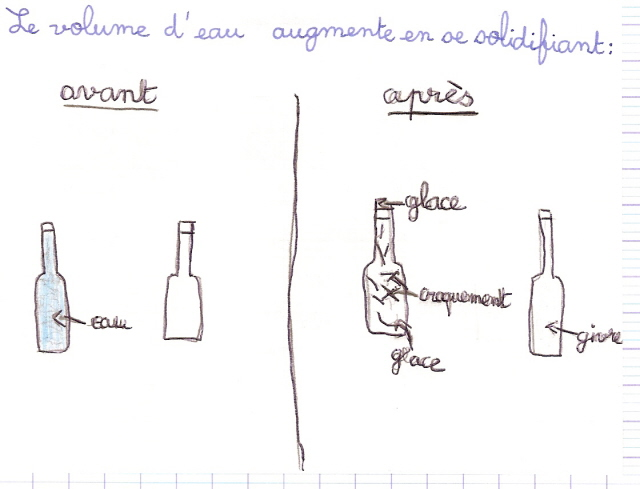 Le volume d'eau augmente en se solidifiant:
avant
après
glace
eau
craquement
givre
glace